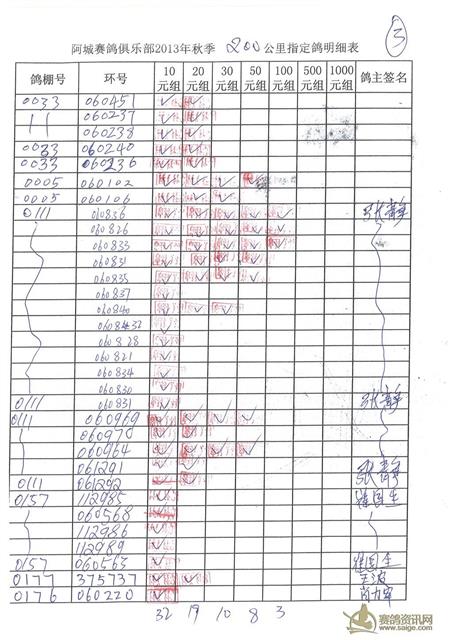 阿城赛鸽俱乐部2013年秋季 200公里指定鸽明细表 ③
鸽棚号 环号 10元组 20元组 30元组 50元组 100元组 500元组 1000元组 鸽主签名
0033 060451
060237
060238
0033 060240
0033 060236
0005 060102
0005 060106
0111 060836
060826
060833
060831
060835
060837
060840
060828
060821
060834
060830
0111 060831
0111 060969
060970
060964
061291
0111 061292
0157 112985
060568
112986
112989
0157 060565
0177 375737 王波
0176 060220
32 19 10 8 3
赛鸽资讯网
www.saige.com